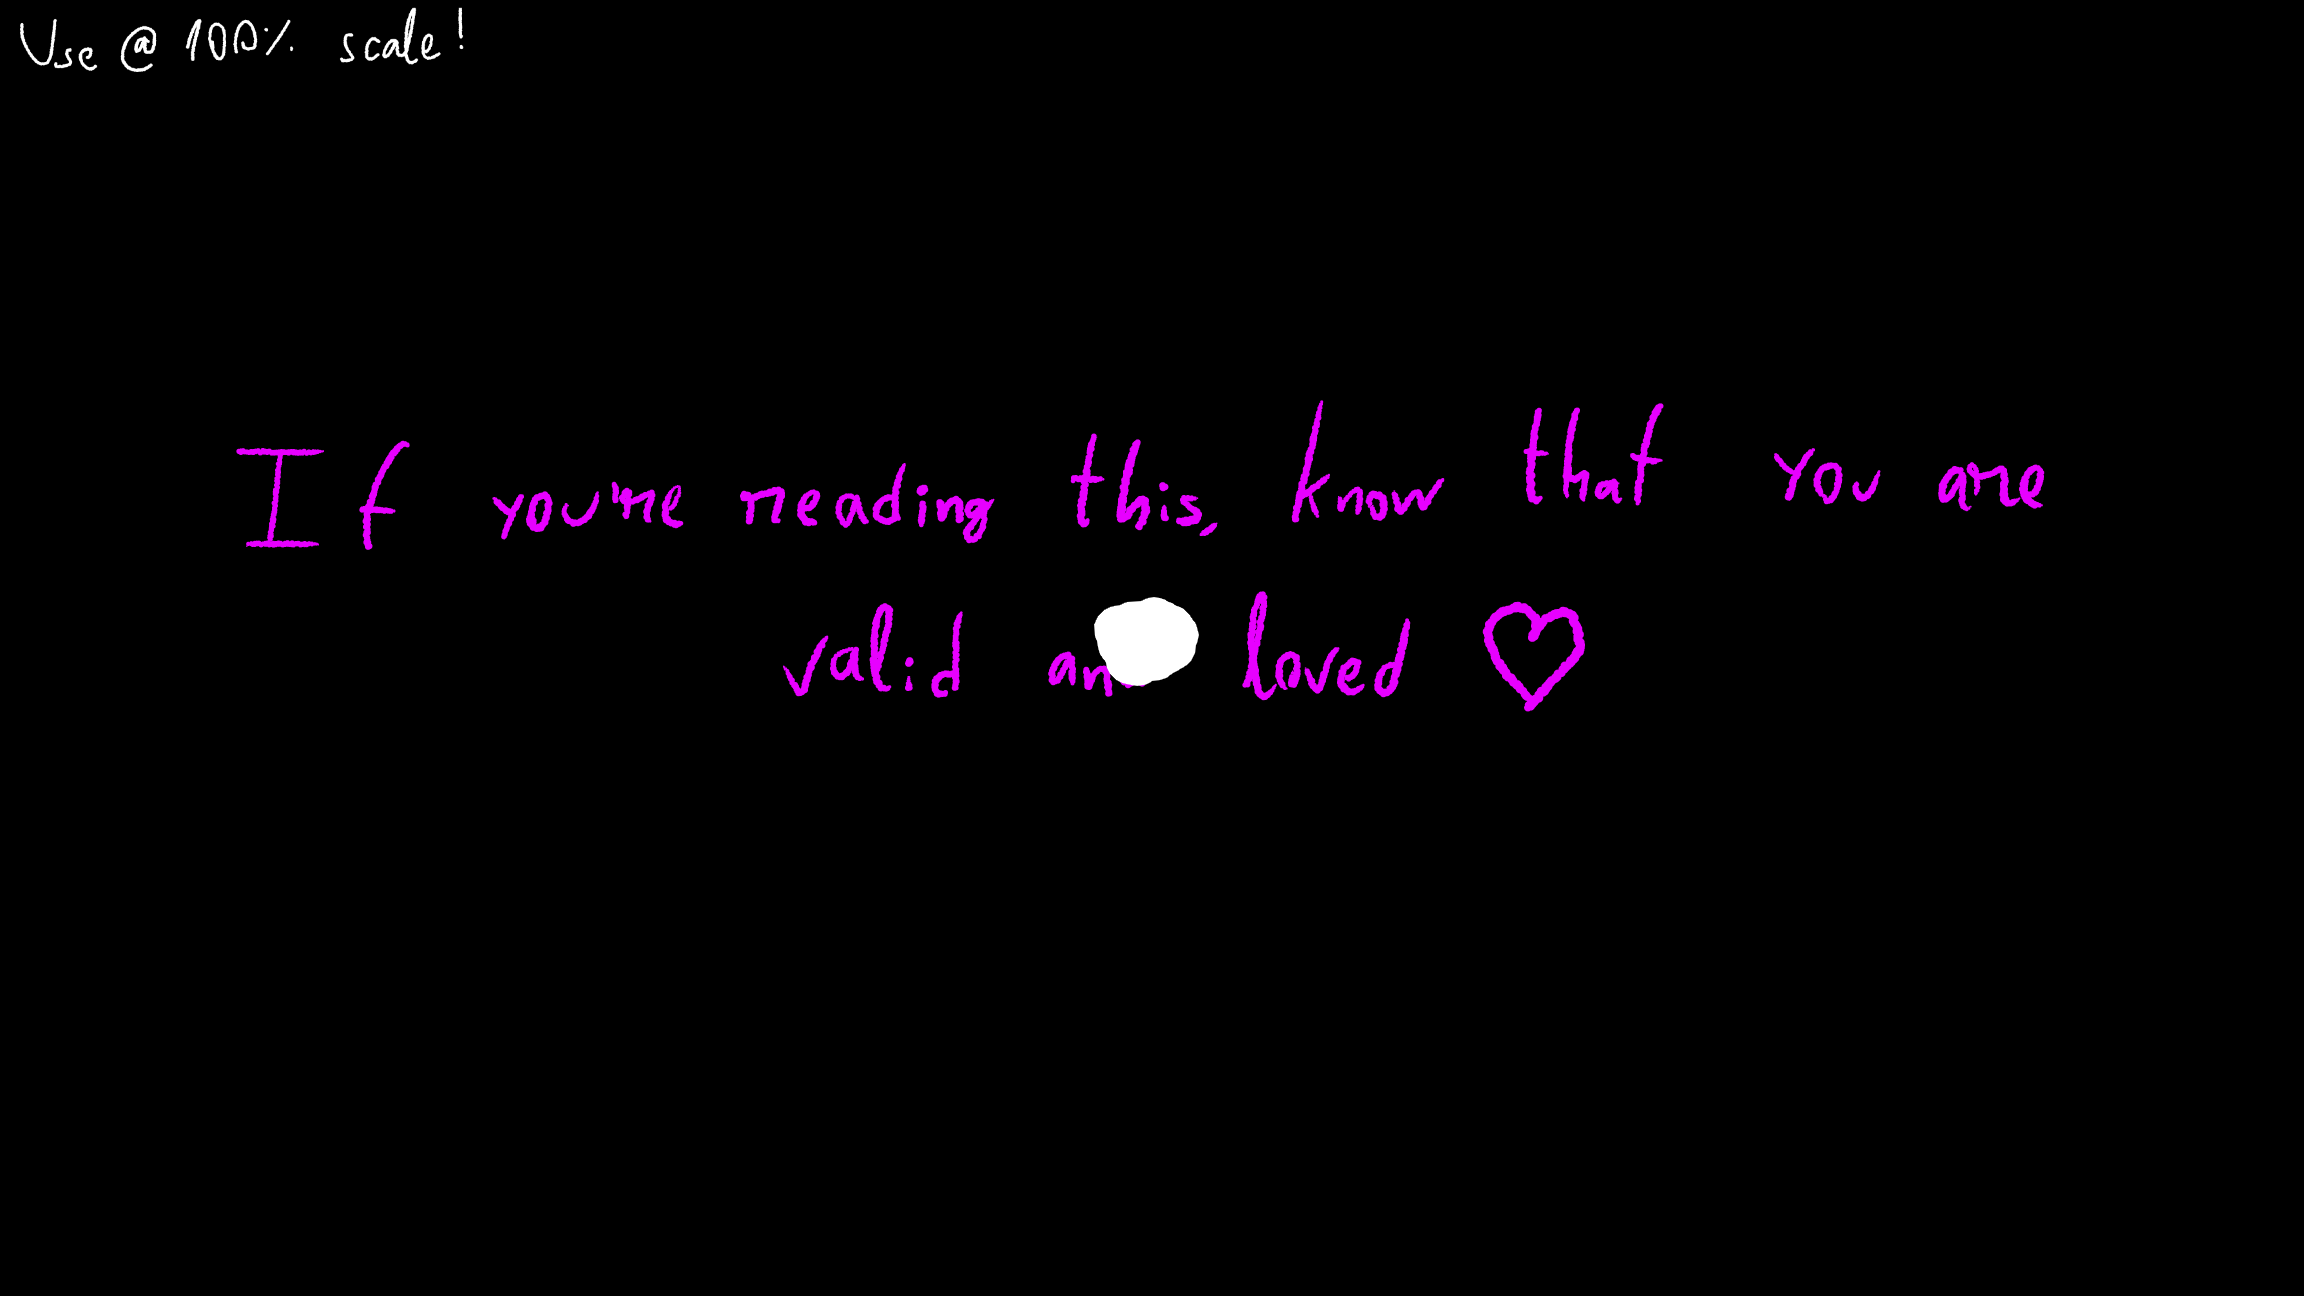 Use @ 100% scale!
If you're reading this, know that you are
valid an loved ♡